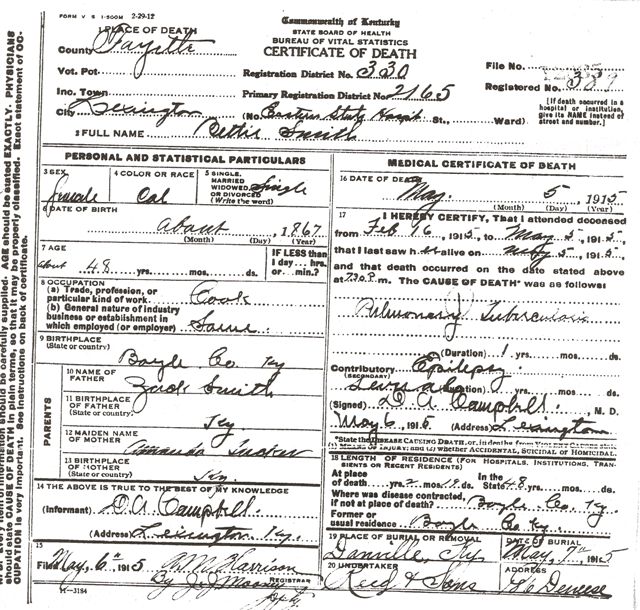 FORM V S 1-500M 2-29-12
Commonwealth of Kentucky
STATE BOARD OF HEALTH
BUREAU OF VITAL STATISTICS
CERTIFICATE OF DEATH
1 PLACE OF DEATH
County Fayette
Vot. Pct
Inc. Town
City Lexington
Registration District No. 330
Primary Registration District No. 2165
(No. Eastern State Hospt St., Ward)
File No.
Registered No. 389
[If death occurred in a hospital or institution, give its NAME instead of street and number.]
2 FULL NAME Bettie Smith
PERSONAL AND STATISTICAL PARTICULARS
3 SEX Female
4 COLOR OR RACE Col
5 SINGLE, MARRIED WIDOWED, OR DIVORCED (Write the word) Single
6 DATE OF BIRTH about, 1867
(Month) (Day) (Year)
7 AGE about 48 yrs. mos. ds.
IF LESS than 1 day hrs. or min.?
8 OCCUPATION
(a) Trade, profession, or particular kind of work. Cook
(b) General nature of industry business or establishment in which employed (or employer) Same
9 BIRTHPLACE
(State or country) Boyle Co Ky
PARENTS
10 NAME OF FATHER Zack Smith
11 BIRTHPLACE OF FATHER
(State or country) Ky
12 MAIDEN NAME OF MOTHER Amanda Tucker
13 BIRTHPLACE OF MOTHER
(State or country) Ky.
14 THE ABOVE IS TRUE TO THE BEST OF MY KNOWLEDGE
(Informant) D.A. Campbell
(Address) Lexington Ky.
15
Filed May, 6", 1915 Harrison
REGISTRAR
By J.J. Mooney
Dpty.
11-3184
MEDICAL CERTIFICATE OF DEATH
16 DATE OF DEATH May 5 1915
(Month) (Day) (Year)
17 I HEREBY CERTIFY, That I attended deceased
from Feb 16, 1915, to May 5, 1915,
that I last saw her alive on May 5, 1915,
and that death occurred on the date stated above
at 7.30 P.m. The CAUSE OF DEATH* was as follows:
Pulmonary Tuberculosis
(Duration) 1 yrs. mos. ds.
Contributory Epilepsy
(SECONDARY)
(Duration) yrs. mos. ds.
(Signed) D. A. Campbell, M. D.
May 6, 1915 (Address) Lexington
*State the DISEASE CAUSING DEATH, or, in deaths from VIOLENT CAUSES state
(1) MEANS OF INJURY; and (2) whether ACCIDENTAL, SUICIDAL or HOMICIDAL.
18 LENGTH OF RESIDENCE (FOR HOSPITALS, INSTITUTIONS, TRANSIENTS OR RECENT RESIDENTS)
At place of death yrs. 2 mos. 19 ds. In the State 48 yrs. mos. ds.
Where was disease contracted, if not at place of death? Boyle Co. Ky.
Former or usual residence Boyle Co Ky.
19 PLACE OF BURIAL OR REMOVAL Danville, Ky
DATE OF BURIAL May, 7", 1915
20 UNDERTAKER Reed & Sons
ADDRESS
should state CAUSE OF DEATH in plain terms, so that it may be properly classified. Exact statement of OC-
CUPATION is very important. See instructions on back of certificate.
should be carefully supplied. AGE should be stated EXACTLY. PHYSICIANS